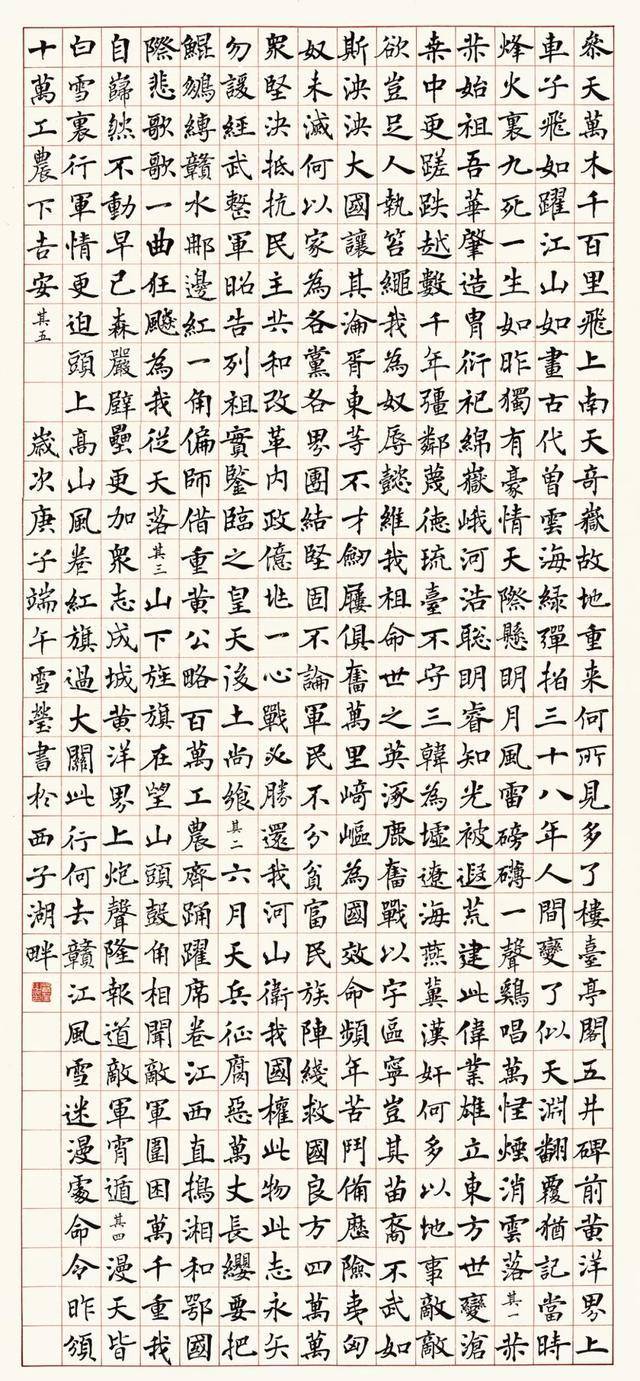 叅天萬木千百里飛上南天奇嶽故地重来何所見多了樓臺亭閣五井碑前黄洋界上
車子飛如躍江山如畫古代曾雲海緑彈指三十八年人間變了似天淵翻覆猶記當時
烽火裏九死一生如昨獨有豪情天際懸明月風雷磅礴一聲鷄唱萬怪煙消雲落其一赫
赫始祖吾華肇造胄衍祀綿嶽峨河浩聰明睿知光被遐荒建此偉業雄立東方世變滄
桑中更蹉跌越數千年疆鄰蔑德琉臺不守三韓為墟遼海燕冀漢奸何多以地事敵敵
欲豈足人執笞繩我為奴辱懿維我祖命世之英涿鹿奮戰以字區寧豈其苗裔不武如
斯泱泱大國讓其淪胥東等不才劒屨俱奮萬里崎嶇為國效命頻年苦鬥備歷險夷匈
奴未滅何以家為各黨各界團結堅固不論軍民不分貧富民族陣綫救國良方四萬萬
衆堅決抵抗民主共和改革内政億兆一心戰必勝還我河山衛我國權此物此志永矢
勿諼經武整軍昭告列祖實鑒臨之皇天後土尚饗其二六月天兵征腐惡萬丈長纓要把
鯤鵬縛贛水那邊紅一角偏師借重黄公略百萬工農齊踊躍席卷江西直搗湘和鄂國
際悲歌歌一曲狂飚為我從天落其三山下旌旗在望山頭鼓角相聞敵軍圍困萬千重我
自巋然不動早已森嚴壁壘更加衆志成城黄洋界上炮聲隆報道敵軍宵遁其四漫天皆
白雪裏行軍情更迫頭上高山風卷紅旗過大關此行何去贛江風雪迷漫處命令昨頒
十萬工農下吉安其五 歲次庚子端午雪瑩書於西子湖畔